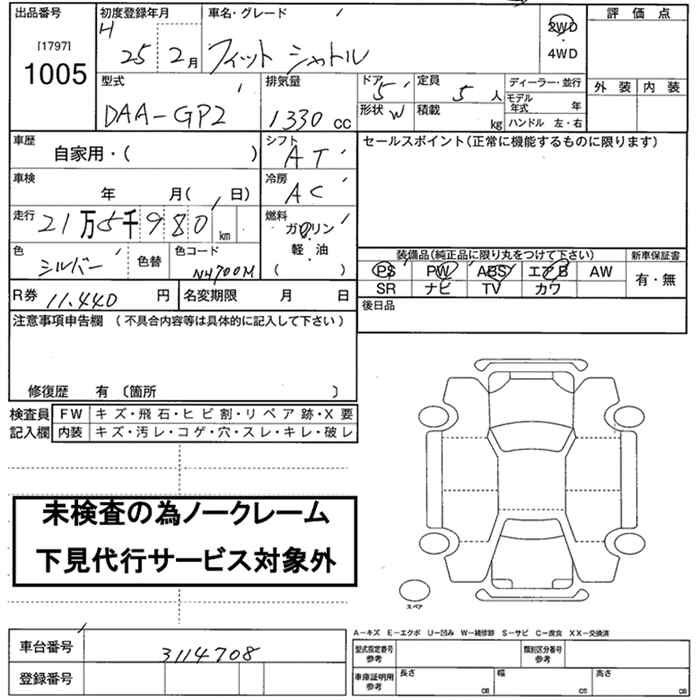 出品番号 初度登録年月 車名・グレード 評価点
[1797] H 25 2月 フィット シャトル 2WD
1005 ・
4WD
型式 排気量 ドア 5 定員 5 人 ディーラー・並行 外装 内装
DAA-GP2 1330 cc 形状 W 積載 kg モデル年式 年
ハンドル 左・右
車歴 自家用・( ) シフト AT セールスポイント(正常に機能するものに限ります)
車検 年 月( 日) 冷房 AC
走行 21万5千980 km 燃料 ガソリン
軽油
( )
色 シルバー 色替 色コード NH700M 装備品(純正品に限り丸をつけて下さい) 新車保証書
PS PW ABS エアB AW 有・無
SR ナビ TV カワ
R券 11,440 円 名変期限 月 日 後日品
注意事項申告欄 (不具合内容等は具体的に記入して下さい)
修復歴 有 〔箇所 〕
検査員 FW キズ・飛石・ヒビ割・リペア跡・X要
記入欄 内装 キズ・汚レ・コゲ・穴・スレ・キレ・破レ
未検査の為ノークレーム
下見代行サービス対象外
スペア
A-キズ E-エクボ U-凹み W-補修跡 S-サビ C-腐食 XX-交換済
車台番号 3114708 型式指定番号 参考 類別区分番号 参考
登録番号 車庫証明用 参考 長さ cm 幅 cm 高さ cm